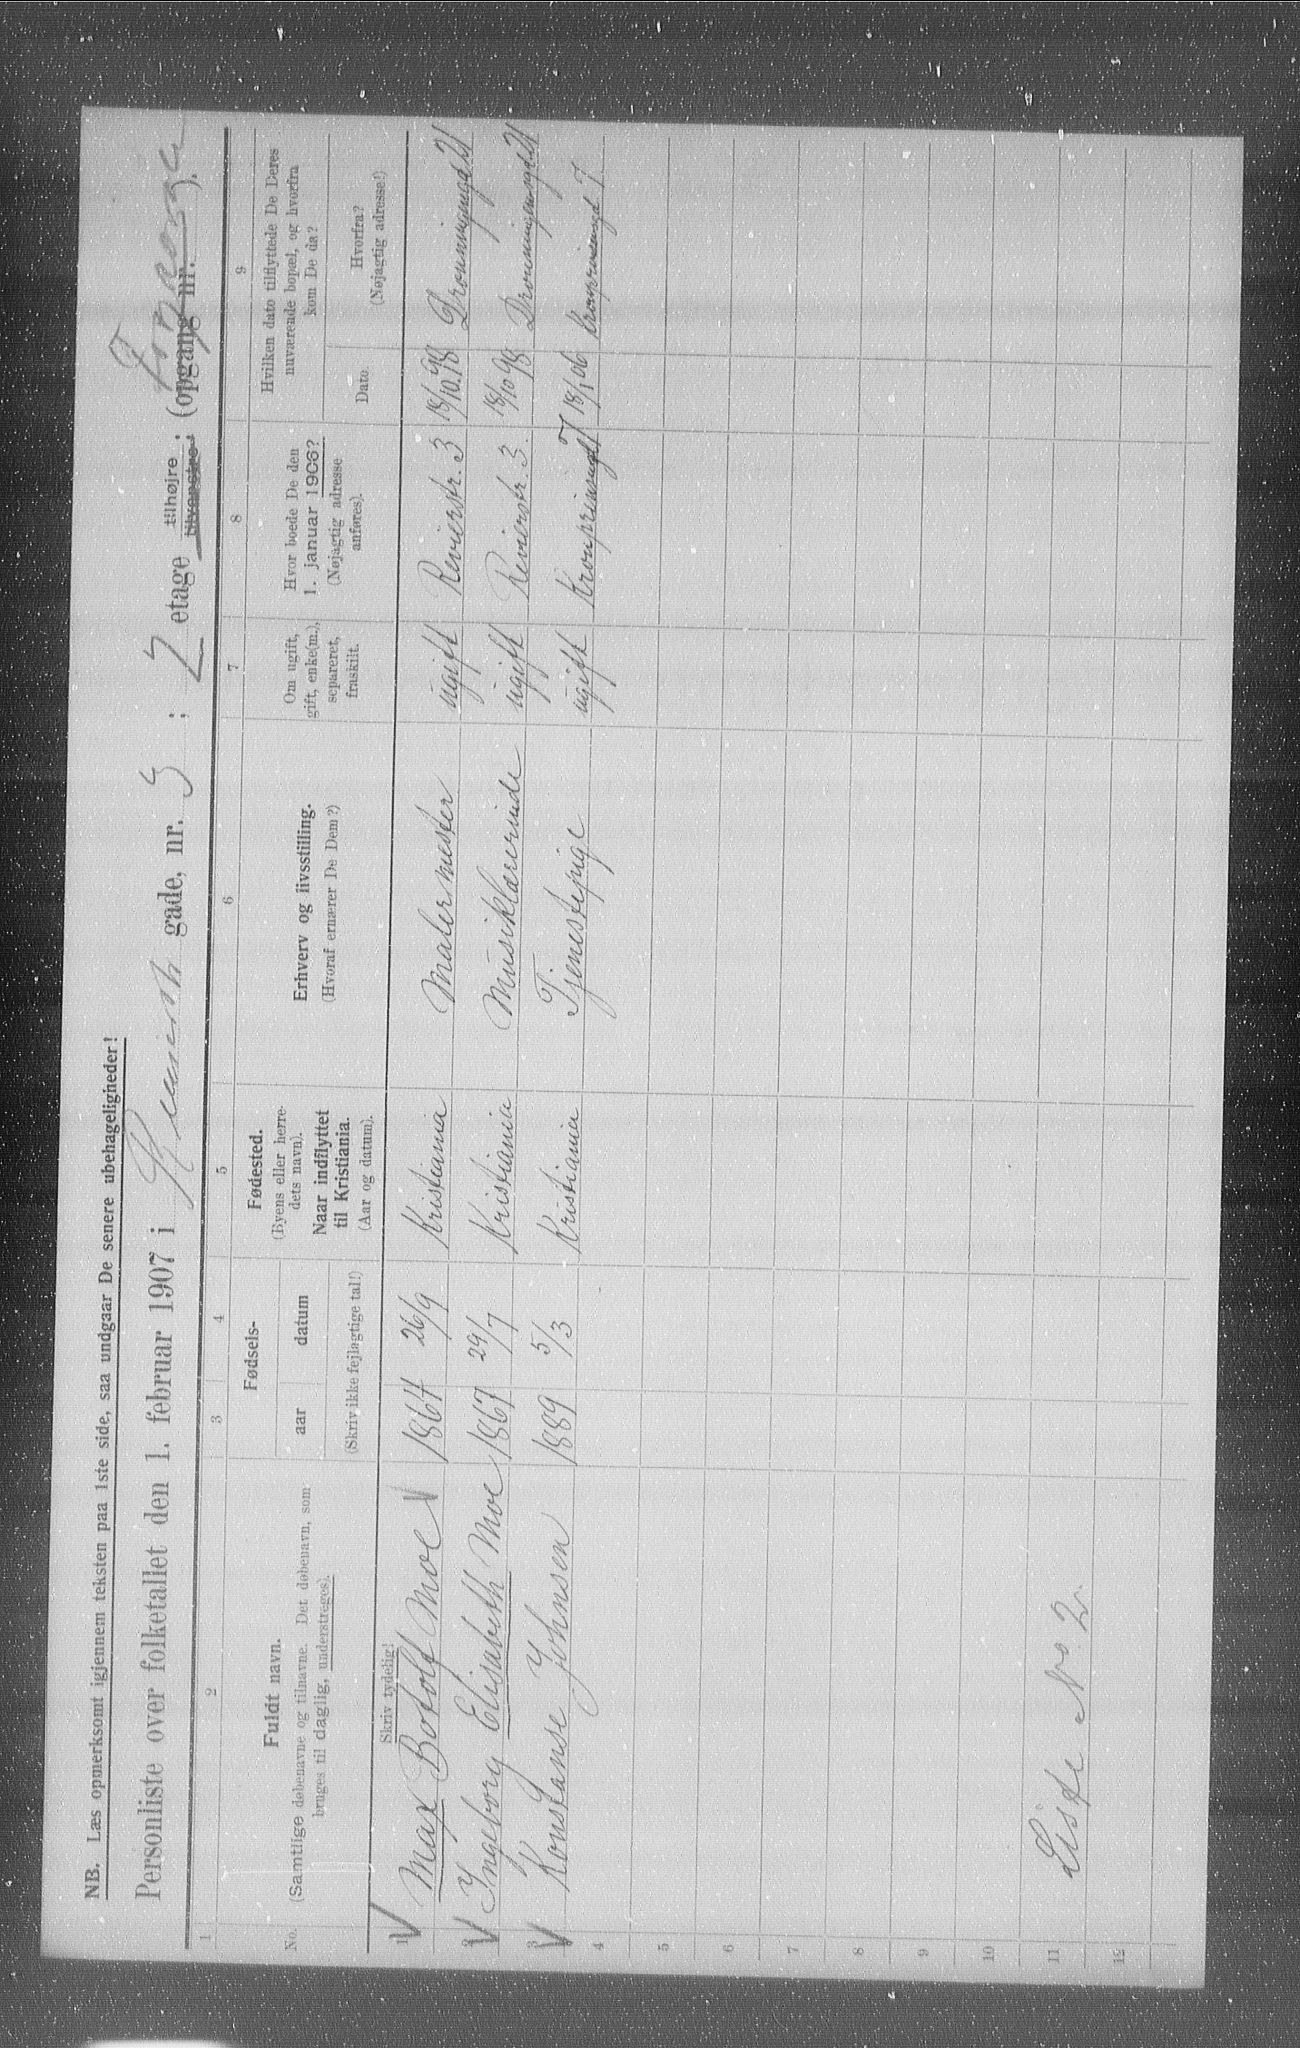 NB. Læs opmerksomt igjennem teksten paa 1ste side, saa undgaar De senere ubehageligheder!
Personliste over folketallet den 1. februar 1907 i Revierstr gade, nr. 3 ; 2 etage tilhøjre ; tilvenstre ; (opgang nr. ).
1 2 3 4 5 6 7 8 9
No.
Fuldt navn.
(Samtlige døbenavne og tilnavne. Det døbenavn, som
bruges til daglig, understreges).
Skriv tydelig!
Fødsels-
aar datum
(Skriv ikke fejlagtige tal!)
Fødested.
(Byens eller herre-
dets navn).
Naar indflyttet
til Kristiania.
(Aar og datum).
Erhverv og livsstilling.
(Hvoraf ernærer De Dem?)
Om ugift,
gift, enke(m.),
separeret,
fraskilt.
Hvor boede De den
1. januar 1906?
(Nøjagtig adresse
anføres).
Hvilken dato tilflyttede De Deres
nuværende bopæl, og hvorfra
kom De da?
Dato
Hvorfra?
(Nøjagtig adresse!)
V 1 Max Botolf Moe V 1864 26/9 Kristiania Malermester ugift Revierstr. 3 18/10.98 Dronningensgd 21
V 2 Ingeborg Elisabeth Moe 1867 29/7 Kristiania Musiklærerinde ugift Revierstr. 3. 18/10 98 Dronningensgd 21
V 3 Konstanse Johnsen 1889 5/3 Kristiania Tjenestepige ugift Kronprinsensgd 7 18/1 06 Kronprinsensgd 7
4
5
6
7
8
9
10
11 Liste No. 2.
12